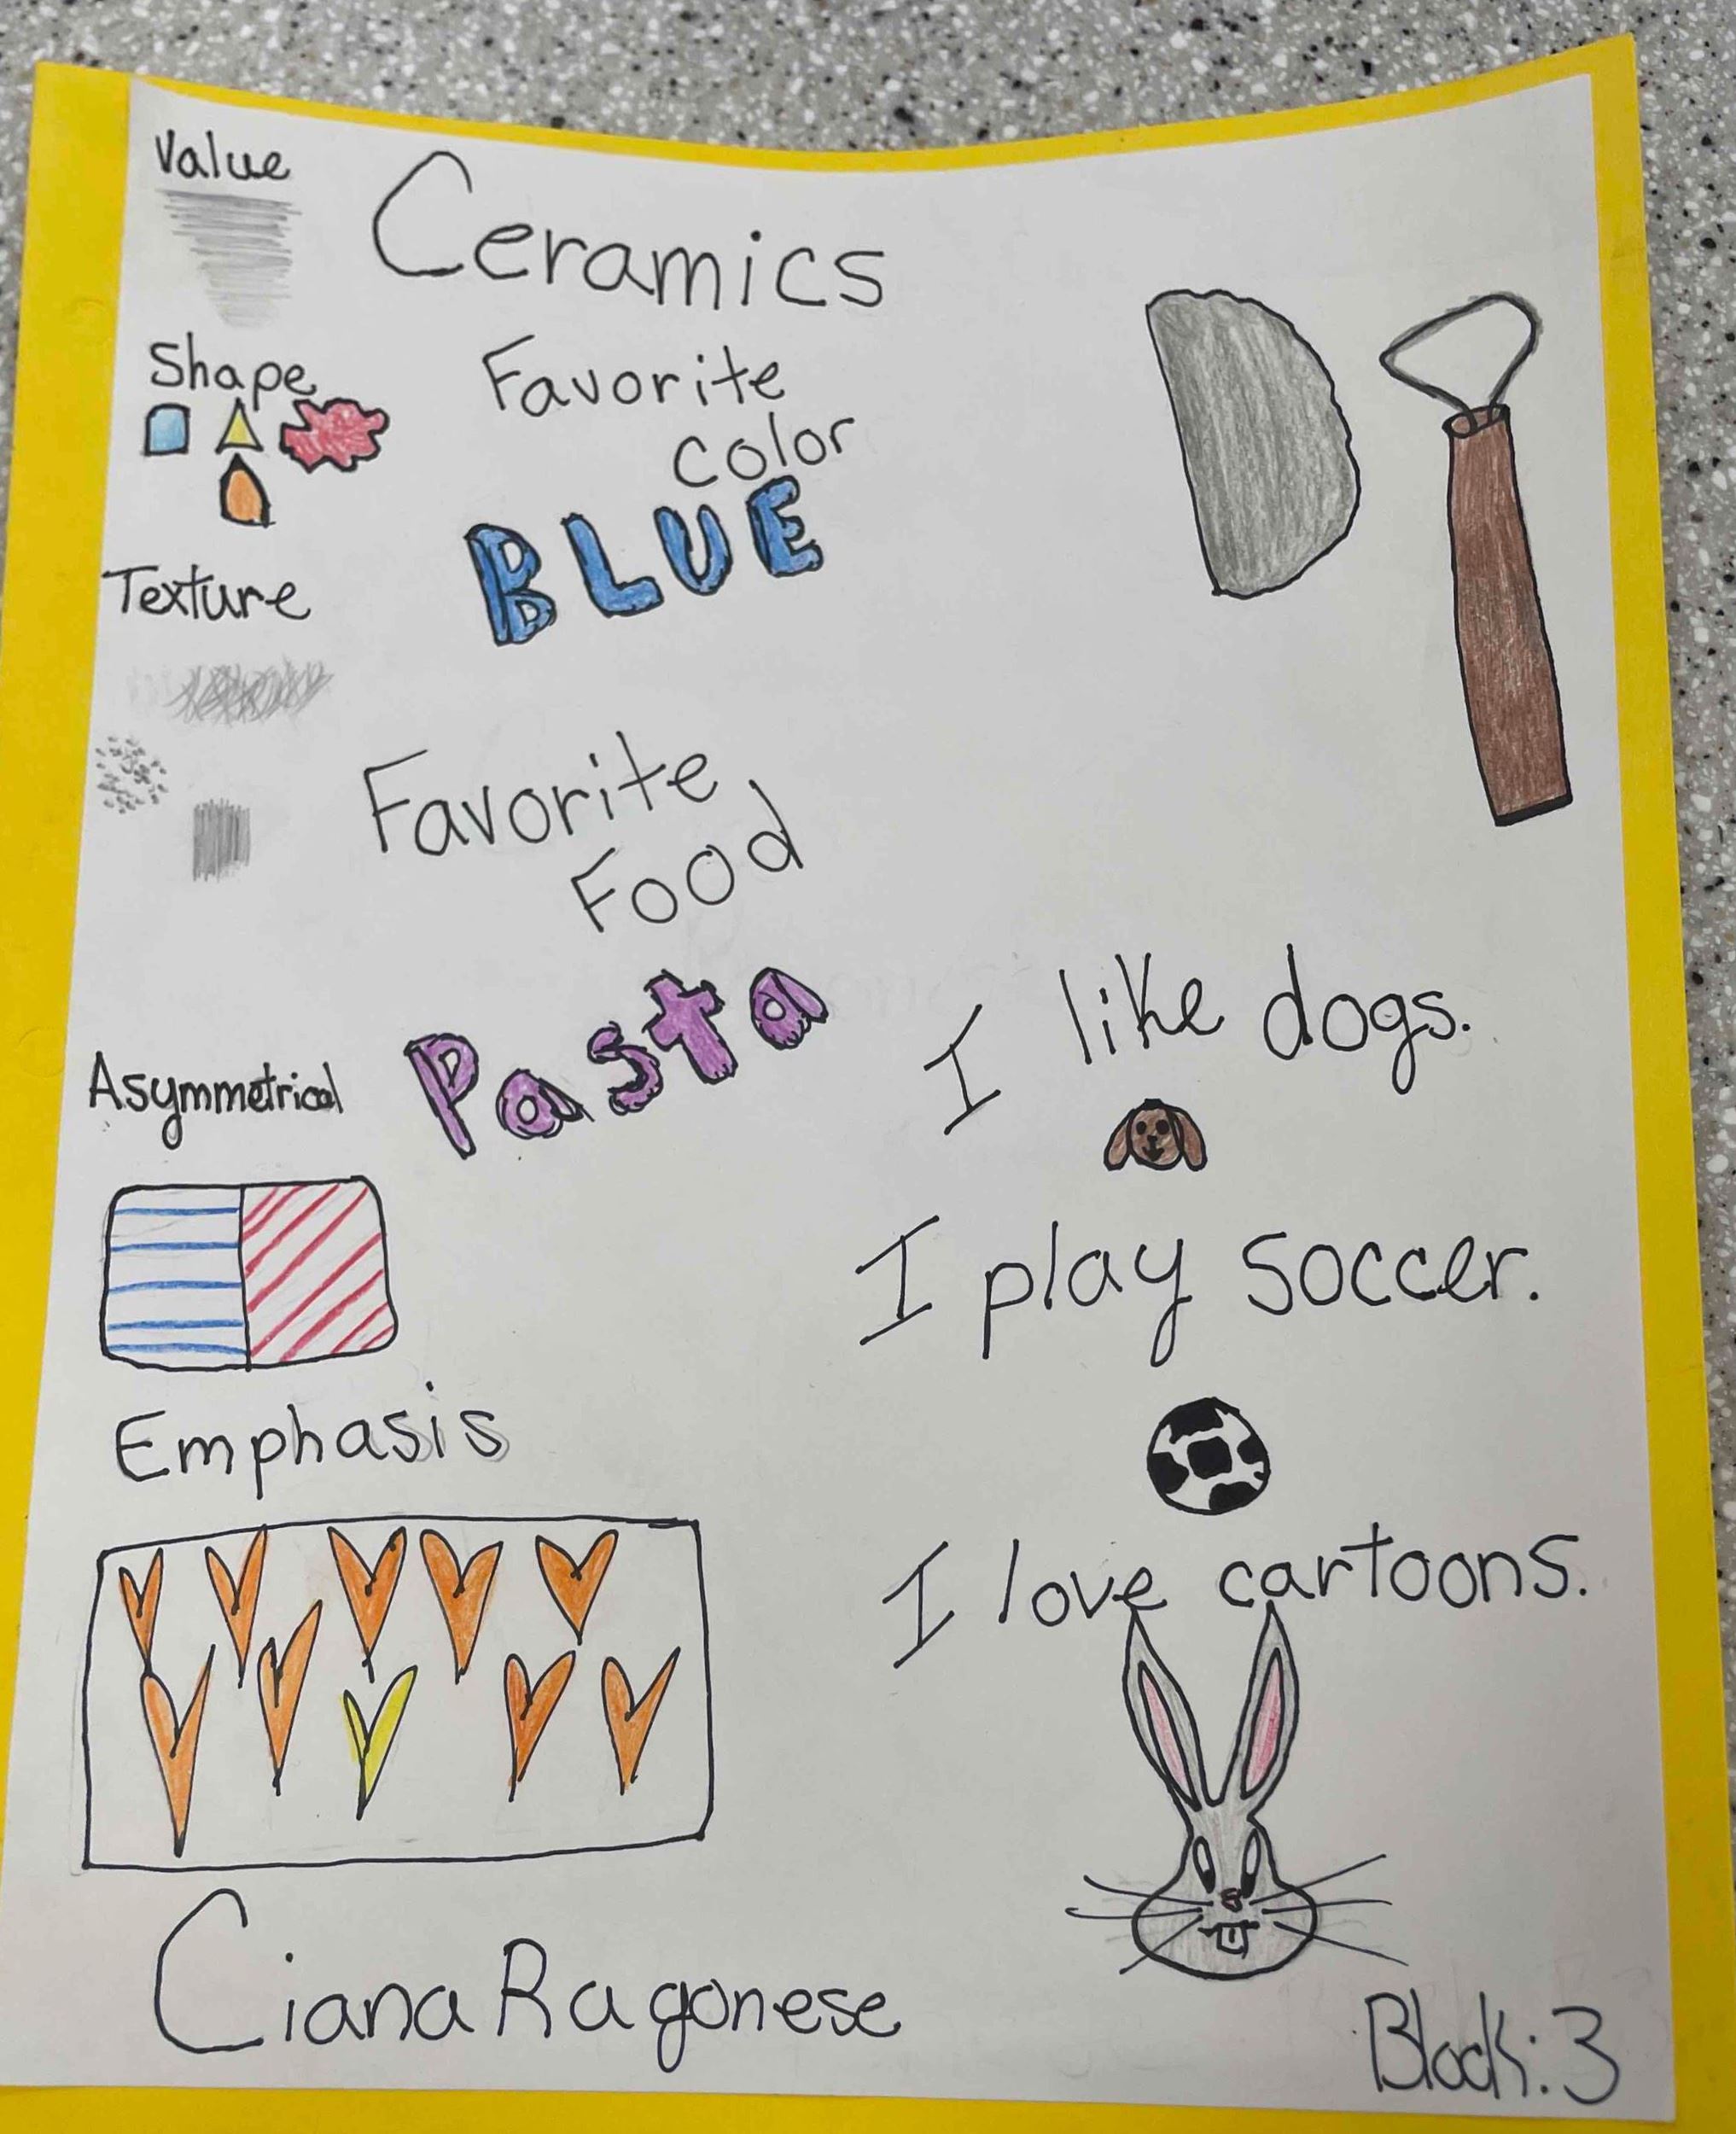 Value
Ceramics
Shape
Favorite
color
BLUE
Texture
Favorite
Food
Pasta
Asymmetrical
I like dogs.
I play soccer.
Emphasis
I love cartoons.
Ciana Ragonese
Block:3